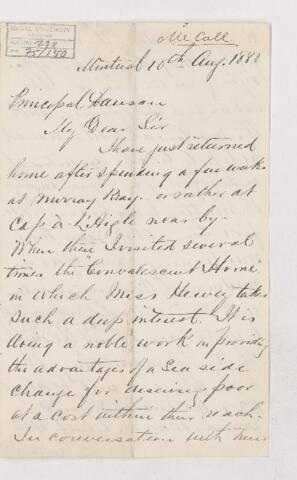 McCall
McGILL UNIVERSITY
Montreal 10th Aug. 1880
Principal Dawson
My Dear Sir
I have just returned
home after spending a few weeks
at Murray Bay - or rather at
Cap-à-L'Aigle near by.
When there I visited several
times the "Convalescent Home"
in which Miss Hervey takes
such a deep interest. It is
doing a noble work in providing
the advantages of a Sea side
change for deserving poor
at a cost within their reach.
In conversation with Miss